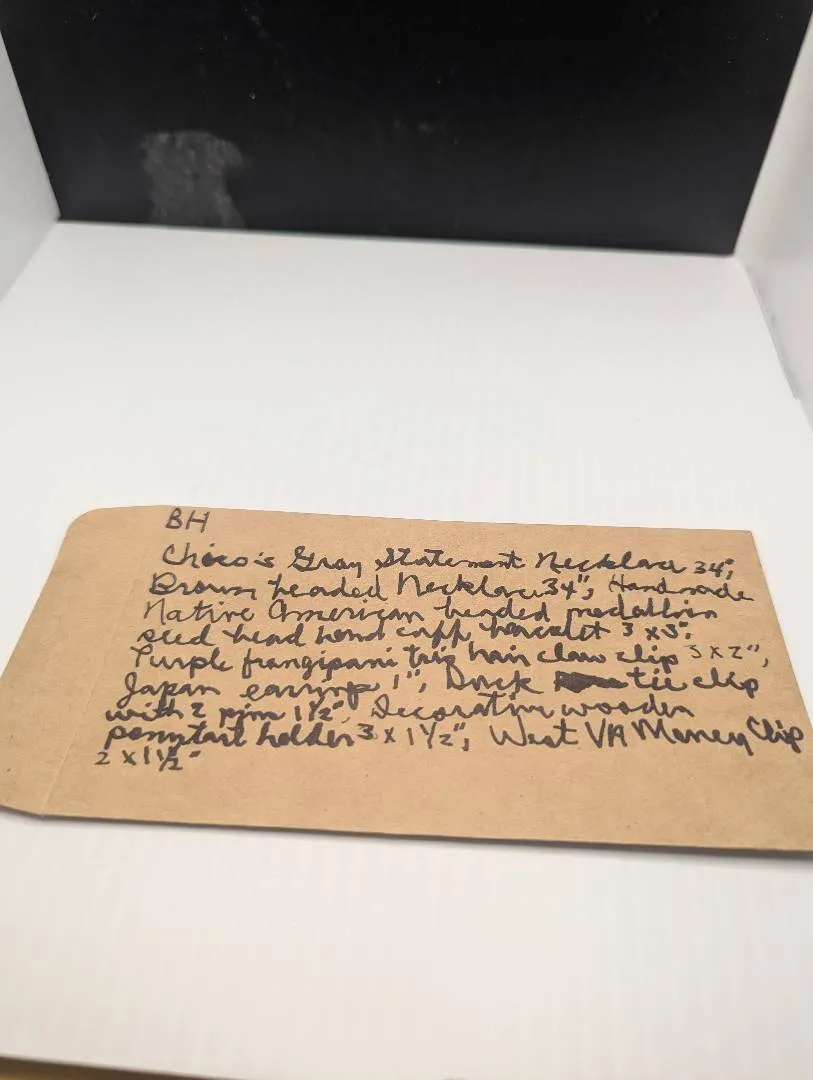 BH
Chico's Gray Statement Necklace 34",
Brown beaded Necklace 34", Handmade
Native American beaded medallion
seed bead hand cuff bracelet 3 x 3",
Purple frangipani trip hair claw clip 3 x 2",
Japan earrings 1", Duck tie clip
with 2 pins 1 1/2", Decorative wooden
ponytail holder 3 x 1 1/2", West VA Money Clip
2 x 1 1/2"